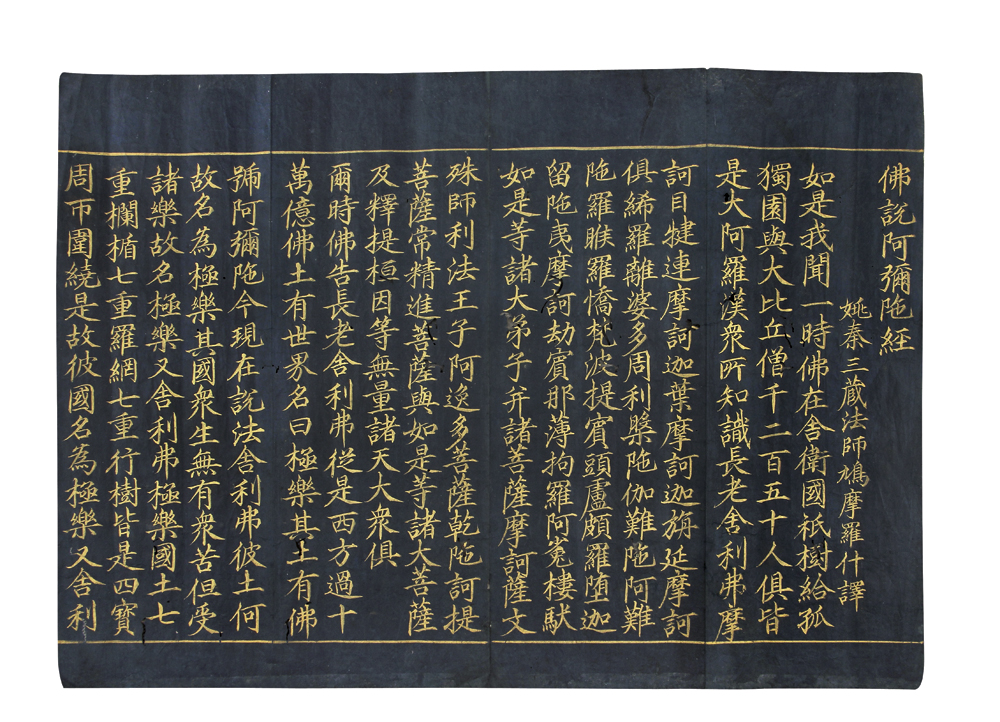 佛說阿彌陁經
姚秦三藏法師鳩摩羅什譯
如是我聞一時佛在舍衛國祇樹給孤
獨園與大比丘僧千二百五十人俱皆
是大阿羅漢衆所知識長老舍利弗摩
訶目揵連摩訶迦葉摩訶迦旃延摩訶
俱絺羅離婆多周利槃陁伽難陁阿難
陁羅睺羅憍梵波提賓頭盧頗羅墮迦
留陁夷摩訶劫賓那薄拘羅阿㝹樓馱
如是等諸大弟子并諸菩薩摩訶薩文
殊師利法王子阿逸多菩薩乾陁訶提
菩薩常精進菩薩與如是等諸大菩薩
及釋提桓因等無量諸天大衆俱
爾時佛告長老舍利弗從是西方過十
萬億佛土有世界名曰極樂其土有佛
號阿彌陁今現在說法舍利弗彼土何
故名爲極樂其國衆生無有衆苦但受
諸樂故名極樂又舍利弗極樂國土七
重欄楯七重羅網七重行樹皆是四寶
周帀圍繞是故彼國名爲極樂又舍利